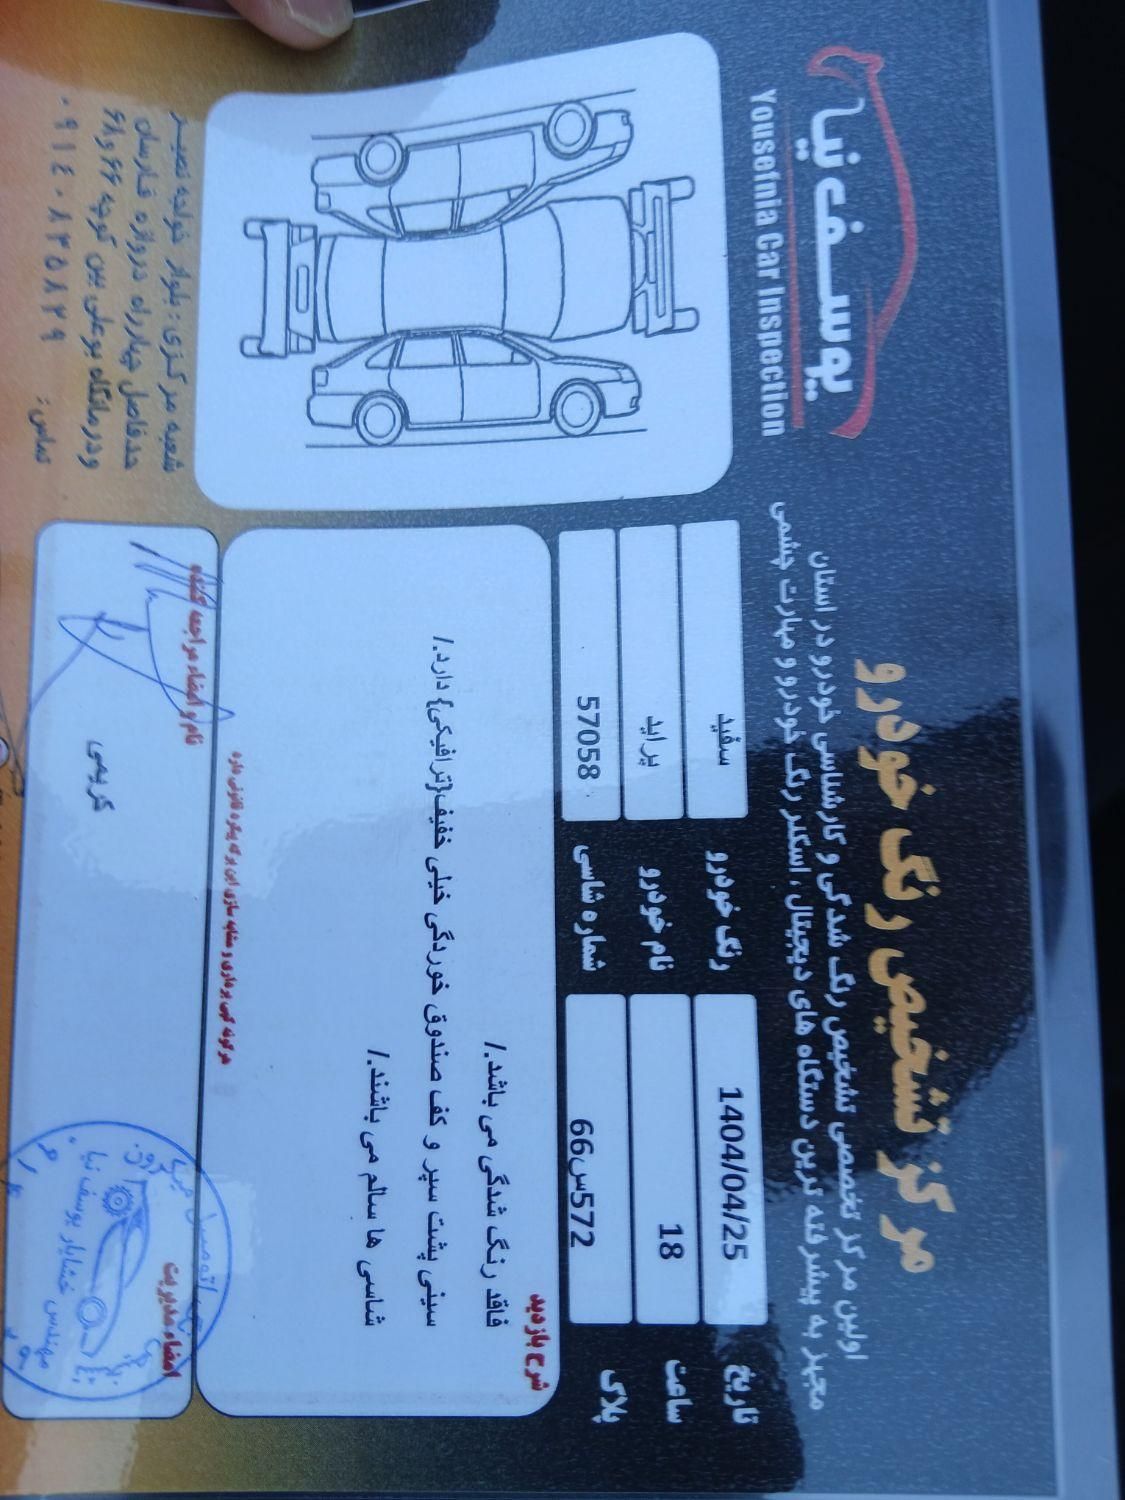 یوسف نیا
Yousefnia Car Inspection
مرکز تشخیص رنگ خودرو
اولین مرکز تخصصی تشخیص رنگ شدگی و کارشناسی خودرو در استان
مجهز به پیشرفته ترین دستگاه های دیجیتال ، اسکنر رنگ خودرو و مهارت چشمی
تاریخ 1404/04/25 رنگ خودرو سفید
ساعت 18 نام خودرو پراید
پلاک 572س66 شماره شاسی 57058
شرح بازدید
فاقد رنگ شدگی می باشد./
سینی پشت سپر و کف صندوق خوردگی خیلی خفیف{ترافیکی} دارد./
شاسی ها سالم می باشند./
هرگونه کپی برداری و مشابه سازی این برگه پیگرد قانونی دارد
امضاء مدیریت
نام و امضاء مراجعه کننده
کریمی
مهندس خشایار یوسف نیا
شعبه مرکزی : بلوار خواجه نصیر
حدفاصل چهارراه دروازه فارسان
و درمانگاه بوعلی بین کوچه ۶۶ و ۶۸
تماس :